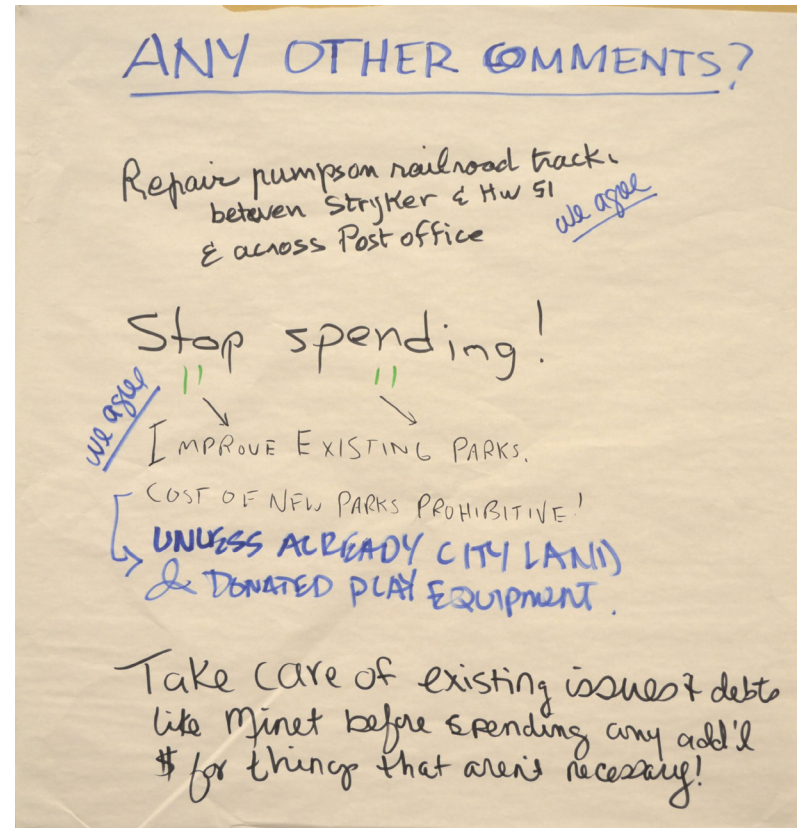 ANY OTHER COMMENTS?
Repair pumpson railroad track.
between Stryker & Hw 51
& across Post office
we agree
Stop spending!
we agree
IMPROVE EXISTING PARKS.
COST OF NEW PARKS PROHIBITIVE!
UNLESS ALREADY CITY LAND
& DONATED PLAY EQUIPMENT.
Take care of existing issues & debts
like Minet before spending any add'l
$ for things that aren't necessary!